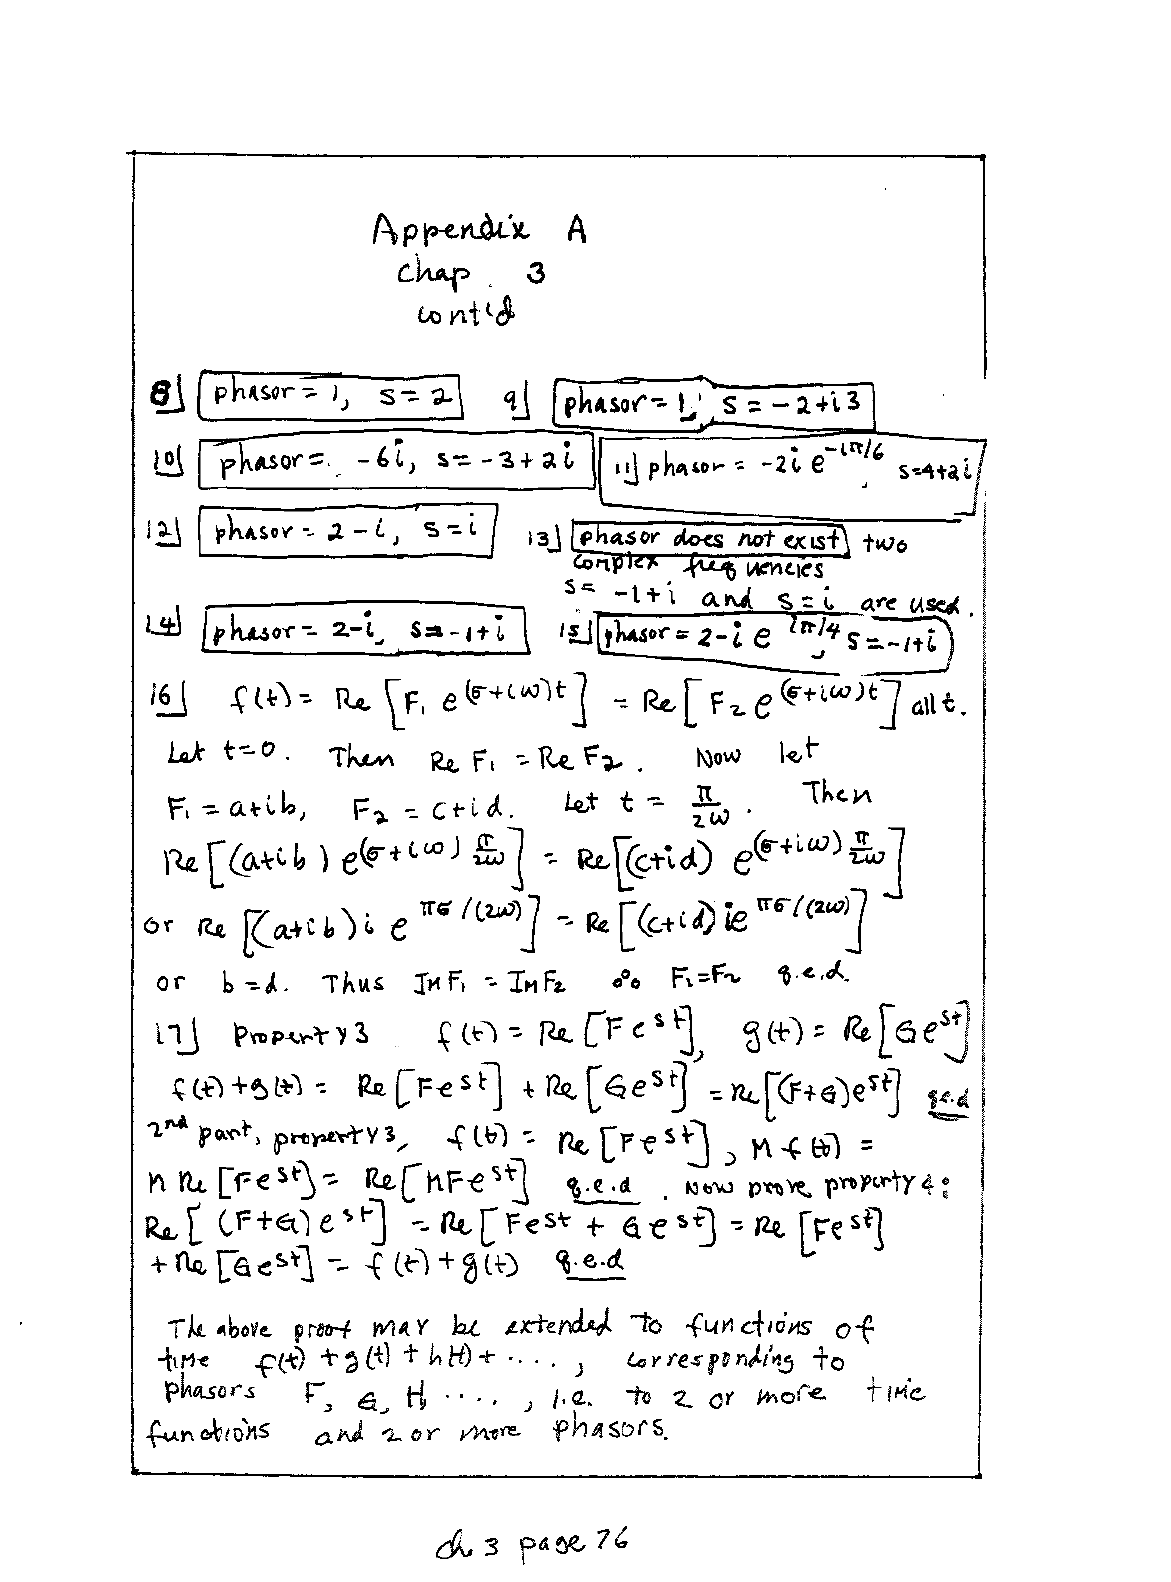 Appendix A
Chap. 3
cont'd
8] phasor = 1, s = 2 9] phasor = 1, s = -2+i3
10] phasor = -6i, s = -3+2i 11] phasor = -2i e^{-iπ/6} s=4+2i
12] phasor = 2-i, s=i 13] phasor does not exist two
complex frequencies
s= -1+i and s=i are used.
14] phasor = 2-i, s=-1+i 15] phasor = 2-i e^{iπ/4}, s=-1+i
16] f(t) = Re [F₁ e^{(σ+iω)t}] = Re [F₂ e^{(σ+iω)t}] all t.
Let t=0. Then Re F₁ = Re F₂. Now let
F₁ = a+ib, F₂ = c+id. Let t = π/2ω. Then
Re [(a+ib) e^{(σ+iω) π/2ω}] = Re [(c+id) e^{(σ+iω) π/2ω}]
or Re [(a+ib) i e^{πσ/(2ω)}] = Re [(c+id) i e^{πσ/(2ω)}]
or b=d. Thus Im F₁ = Im F₂ ∴ F₁=F₂ q.e.d.
17] Property 3 f(t) = Re [F e^{st}], g(t) = Re [G e^{st}]
f(t)+g(t) = Re [F e^{st}] + Re [G e^{st}] = Re [(F+G)e^{st}] q.e.d
2nd part, property 3, f(t) = Re [F e^{st}], n f(t) =
n Re [F e^{st}] = Re [nF e^{st}] q.e.d. Now prove property 4:
Re [(F+G) e^{st}] = Re [F e^{st} + G e^{st}] = Re [F e^{st}]
+ Re [G e^{st}] = f(t) + g(t) q.e.d
The above proof may be extended to functions of
time f(t) + g(t) + h(t) + ...., corresponding to
phasors F, G, H, ...., i.e. to 2 or more time
functions and 2 or more phasors.
ch 3 page 76